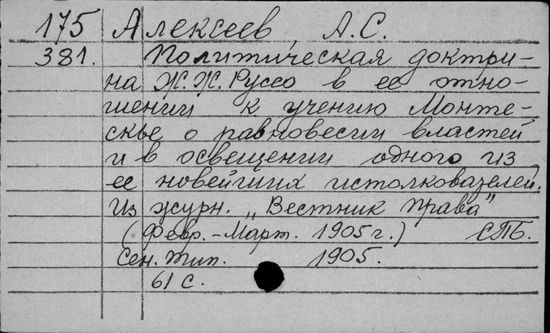 175 Алексеев, А.С.
381. Политическая доктри-
на Ж.Ж.Руссо в ее отно-
шении к учению Монте-
скье о равновесии властей
и в освещении одного из
ее новейших истолкователей.
Из журн. „Вестник Права"
(Февр.-Март. 1905 г.) СПБ.
Сен. Тип. 1905.
61 с.